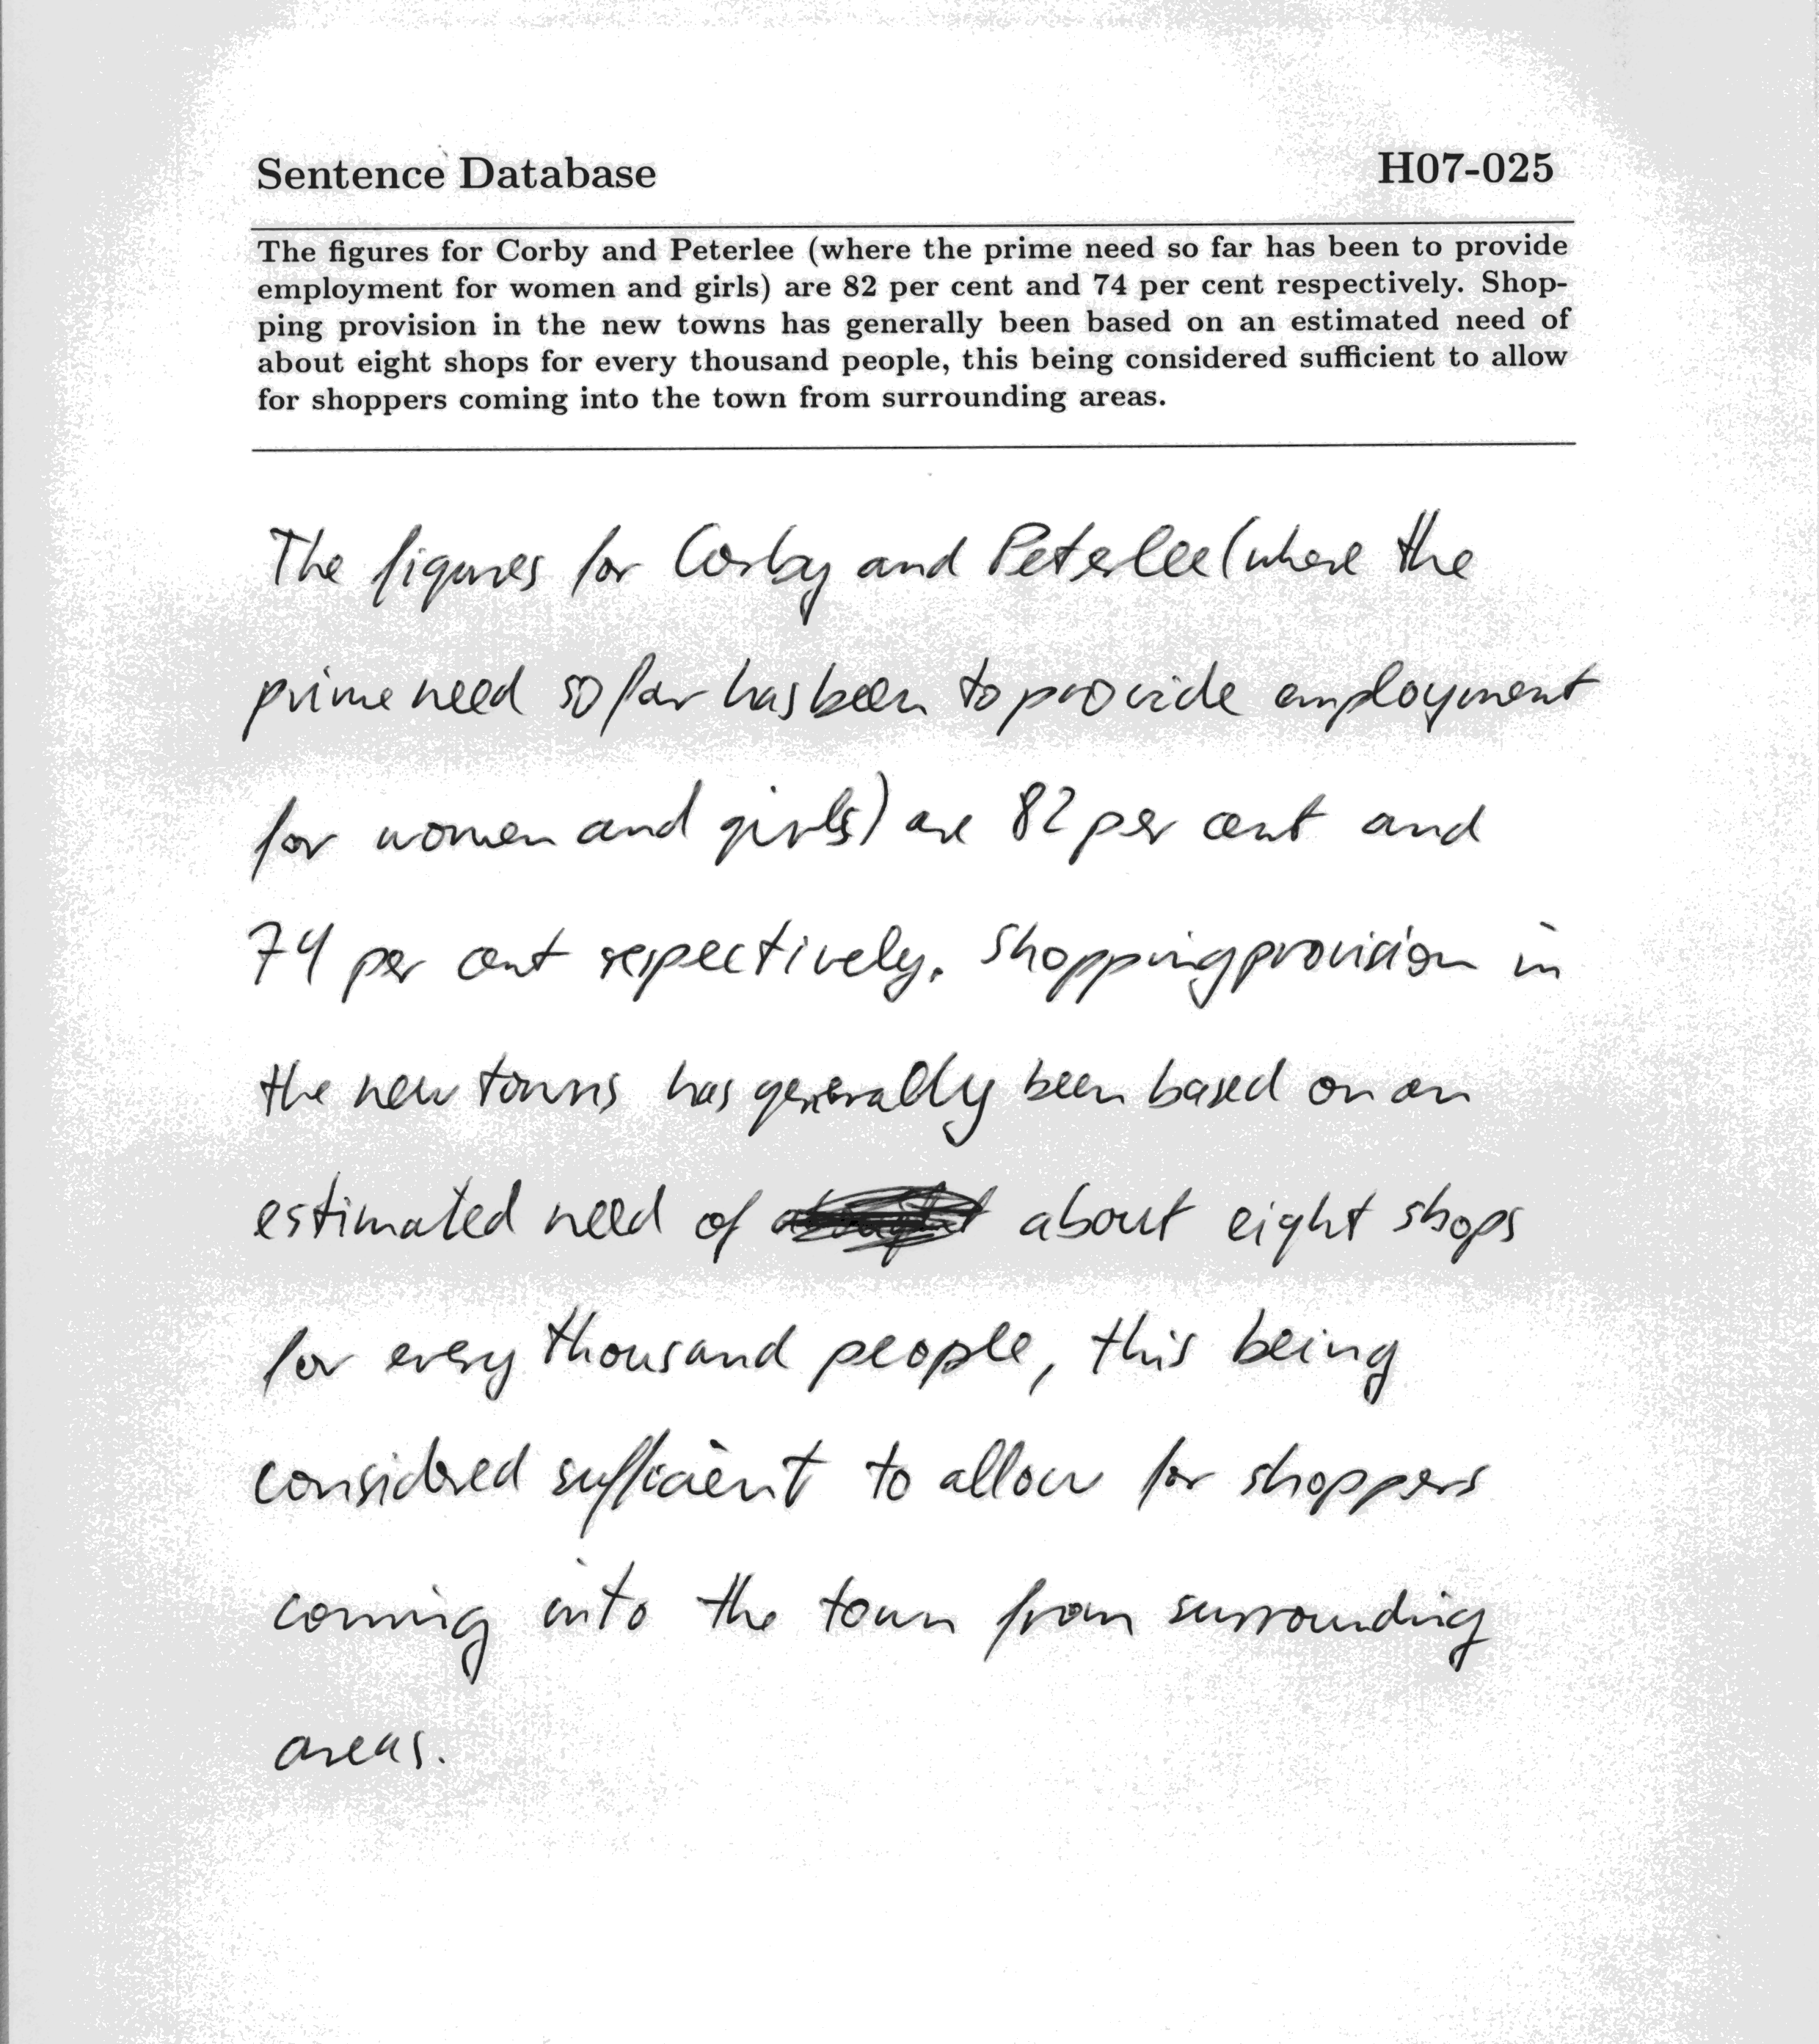 Sentence Database
H07-025
The figures for Corby and Peterlee (where the prime need so far has been to provide
employment for women and girls) are 82 per cent and 74 per cent respectively. Shop-
ping provision in the new towns has generally been based on an estimated need of
about eight shops for every thousand people, this being considered sufficient to allow
for shoppers coming into the town from surrounding areas.
The figures for Corby and Peterlee (where the
prime need so far has been to provide employment
for women and girls) are 82 per cent and
74 per cent respectively. Shopping provision in
the new towns has generally been based on an
estimated need of about eight shops
for every thousand people, this being
considered sufficient to allow for shoppers
coming into the town from surrounding
areas.